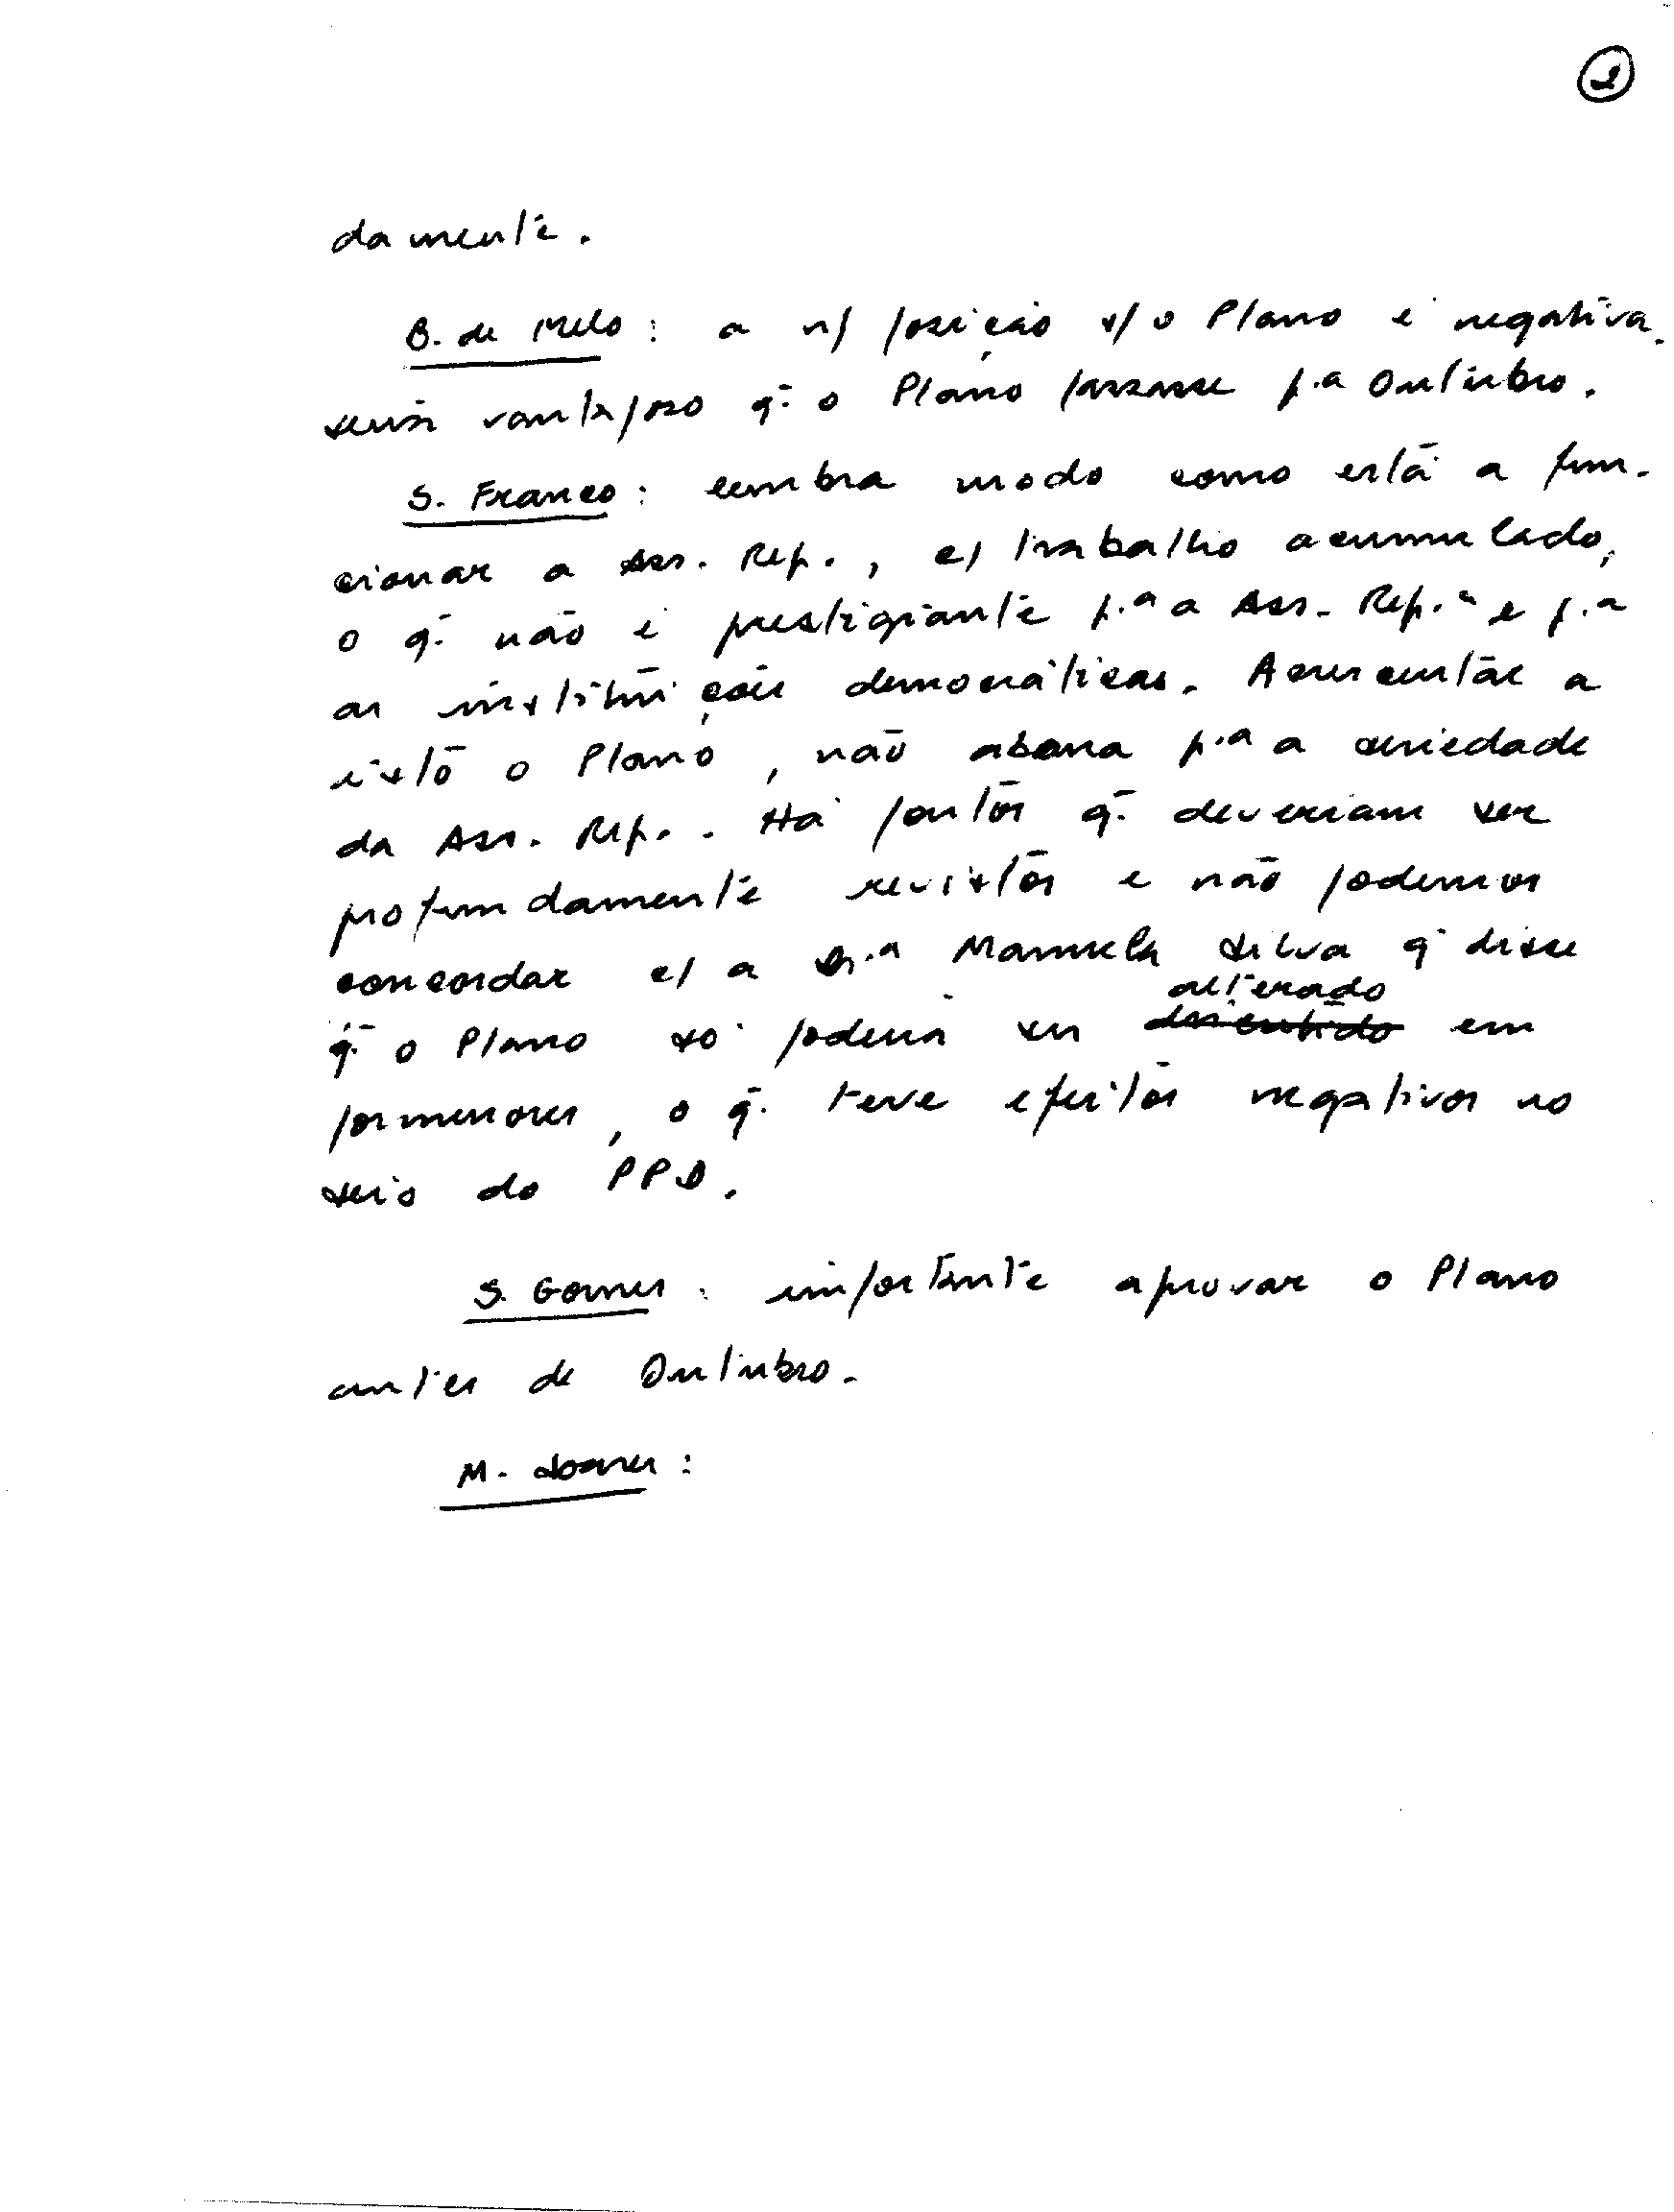 2
damente.
B. de Melo: a n/ posição s/ o Plano é negativa.
Seria vantajoso q. o Plano passasse p.a Outubro.
S. Franco: lembra modo como está a fun-
cionar a Ass. Rep., c/ trabalho acumulado,
o q. não é prestigiante p.a a Ass. Rep.a e p.a
as instituições democráticas. Acrescentar a
isto o Plano, não abona p.a a seriedade
da Ass. Rep.. Há pontos q. deveriam ser
profundamente revistos e não podemos
concordar c/ a Sr.a Manuela Silva q disse
alterado
q. o Plano só poderia ser discutido em
pormenores, o q. teve efeitos negativos no
seio do PPD.
S. Gomes: importante aprovar o Plano
antes de Outubro.
M. Soares: